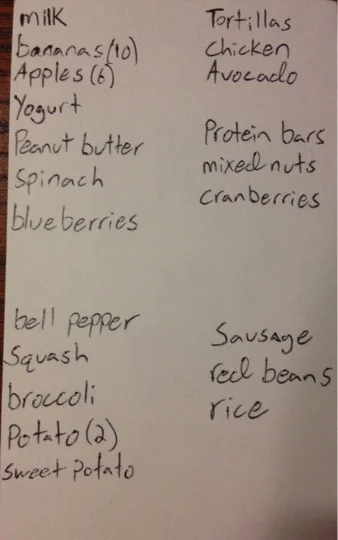 milk
bananas(10)
Apples(6)
Yogurt
Peanut butter
Spinach
blueberries
bell pepper
Squash
broccoli
Potato(2)
sweet potato
Tortillas
Chicken
Avocado
Protein bars
mixed nuts
cranberries
Sausage
red beans
rice